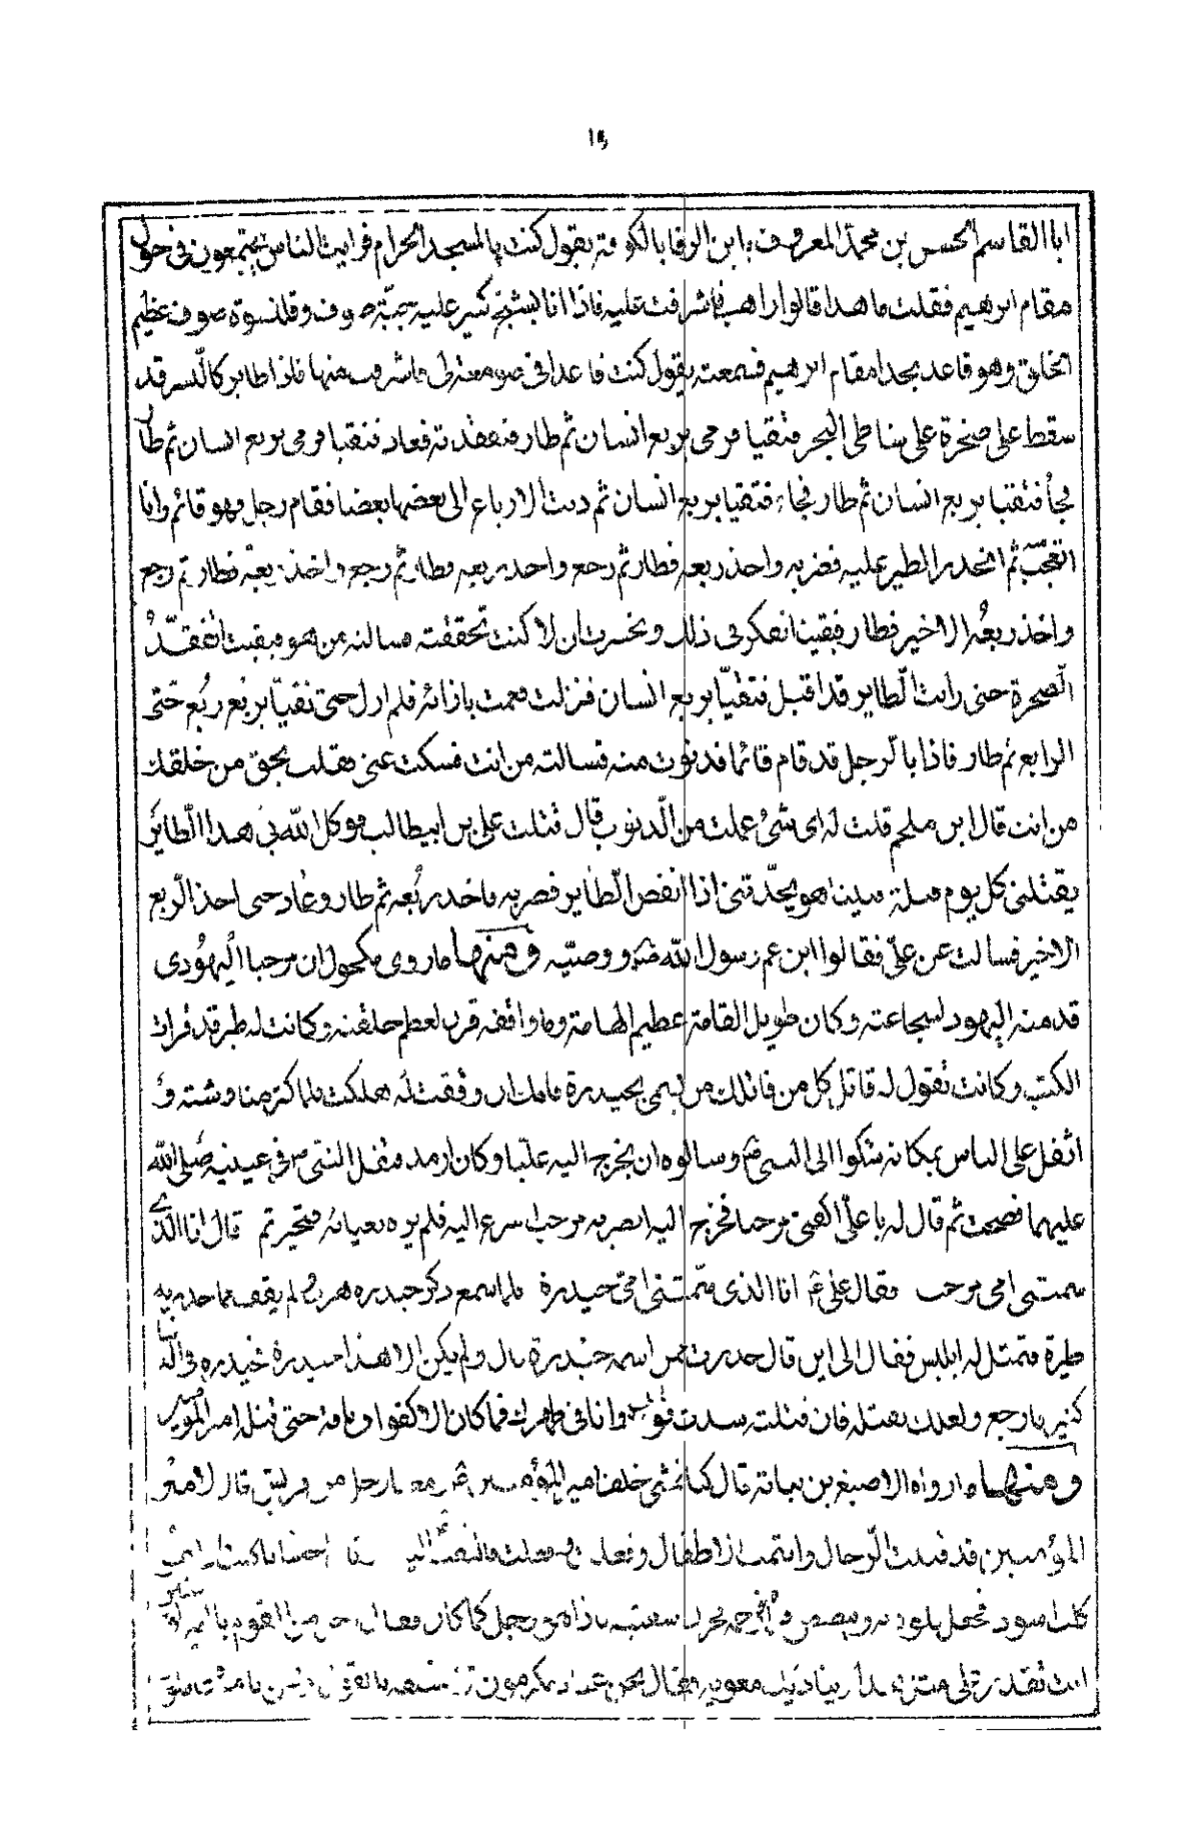 ١٥
ابا القاسم الحسن بن محمد المعروف بابن الرفا بالكوفة يقول كنت بالمسجد الحرام فرايت الناس مجتمعون في حول
مقام ابرهيم فقلت ما هذا قالوا راهب فاشرفت عليه فاذا انا بشيخ كبير عليه جبة صوف وقلنسوة صوف عظيم
الخلق وهو قاعد بحذا مقام ابرهيم فسمعته يقول كنت قاعدا في صومعتي فاشرفت منها فاذا طاير كالنسر قد
سقط على صخرة على شاطى البحر فتقيا فرمى بربع انسان ثم طار فتفقدته فعاد فتقيا فرمى بربع انسان ثم طار
فجأ فتقيا بربع انسان ثم طار فجاء فتقيا بربع انسان ثم دنت الارباع الى بعضها بعضا فقام رجل وهو قائم وانا
اتعجب ثم انحدر الطير عليه فضربه واخذ ربعه فطار ثم رجع واخذ ربعه فطار ثم رجع واخذ ربعه فطار ثم رجع
واخذ ربعه الاخير فطار فبقيت اتفكر في ذلك وتحسرت ان لا كنت تحققته مسالته من هو فبقيت اتفقد
الصخرة حتى رايت الطاير قد اقبل فتقيا بربع انسان فنزلت فقمت بازائه فلم ازل حتى تقيا بربع ربع حتى
الرابع ثم طار فاذا بالرجل قد قام قائما فدنوت منه فسالته من انت فسكت عني فقلت بحق من خلقك
من انت قال ابن ملجم قلت له اى شئ عملت من الذنوب قال قتلت علي بن ابيطالب فوكل الله بي هذا الطاير
يقتلني كل يوم قتلة فبينا هو يحدثني اذا انقض الطاير فضربه فاخذ ربعه ثم طار وعاد حتى اخذ الربع
الاخير فسالت عن علي فقالوا ابن عم رسول الله ووصيه ومنها ما روى مكحول ان مرحبا اليهودى
قدمته اليهود لشجاعته وكان طويل القامة عظيم الهامة وما واقفه قرن لعظم خلقته وكانت له ظير قد قرات
الكتب وكانت تقول له قاتل كل من قاتلك من يسمى بحيدرة فانك ان وقفت له هلكت فلما كثر مناوشته و
اثقل على الناس بمكانه شكوا الى النبي وسالوه ان يخرج اليه عليا وكان ارمد فتفل النبي ص في عينيه صلى الله
عليهما فصحت ثم قال له يا علي اكفني مرحبا فخرج اليه ابصر به مرحب اسرع اليه فلم يره يعبأ به فتحير ثم قال انا الذي
سمتني امي مرحب فقال علي ع انا الذي سمتني امي حيدرة فلما سمع ذكر حيدره هرب لم يقف مما حذرته
ظيرة فتمثل له ابليس فقال الى اين قال حذرت ممن اسمه حيدرة قال ولم يكن الا هذا حيدرة فحيدره في الدنيا
كثير فارجع ولعلك تقتله فان قتلته سدت قومك وانا في ظهرك فما كان الا كفواق ناقة حتى قتله امير المؤمنين
ومنها ما رواه الاصبغ بن نباتة قال كنا نمشي خلف امير المؤمنين ع ومعنا رجل من قريش قال لامير
المؤمنين قد قتلت الرجال وايتمت الاطفال وفعلت فالتفت اليه اخسا ياكلب
كلب اسود فجعل يلوذ به ويبصبص
ثقدر على